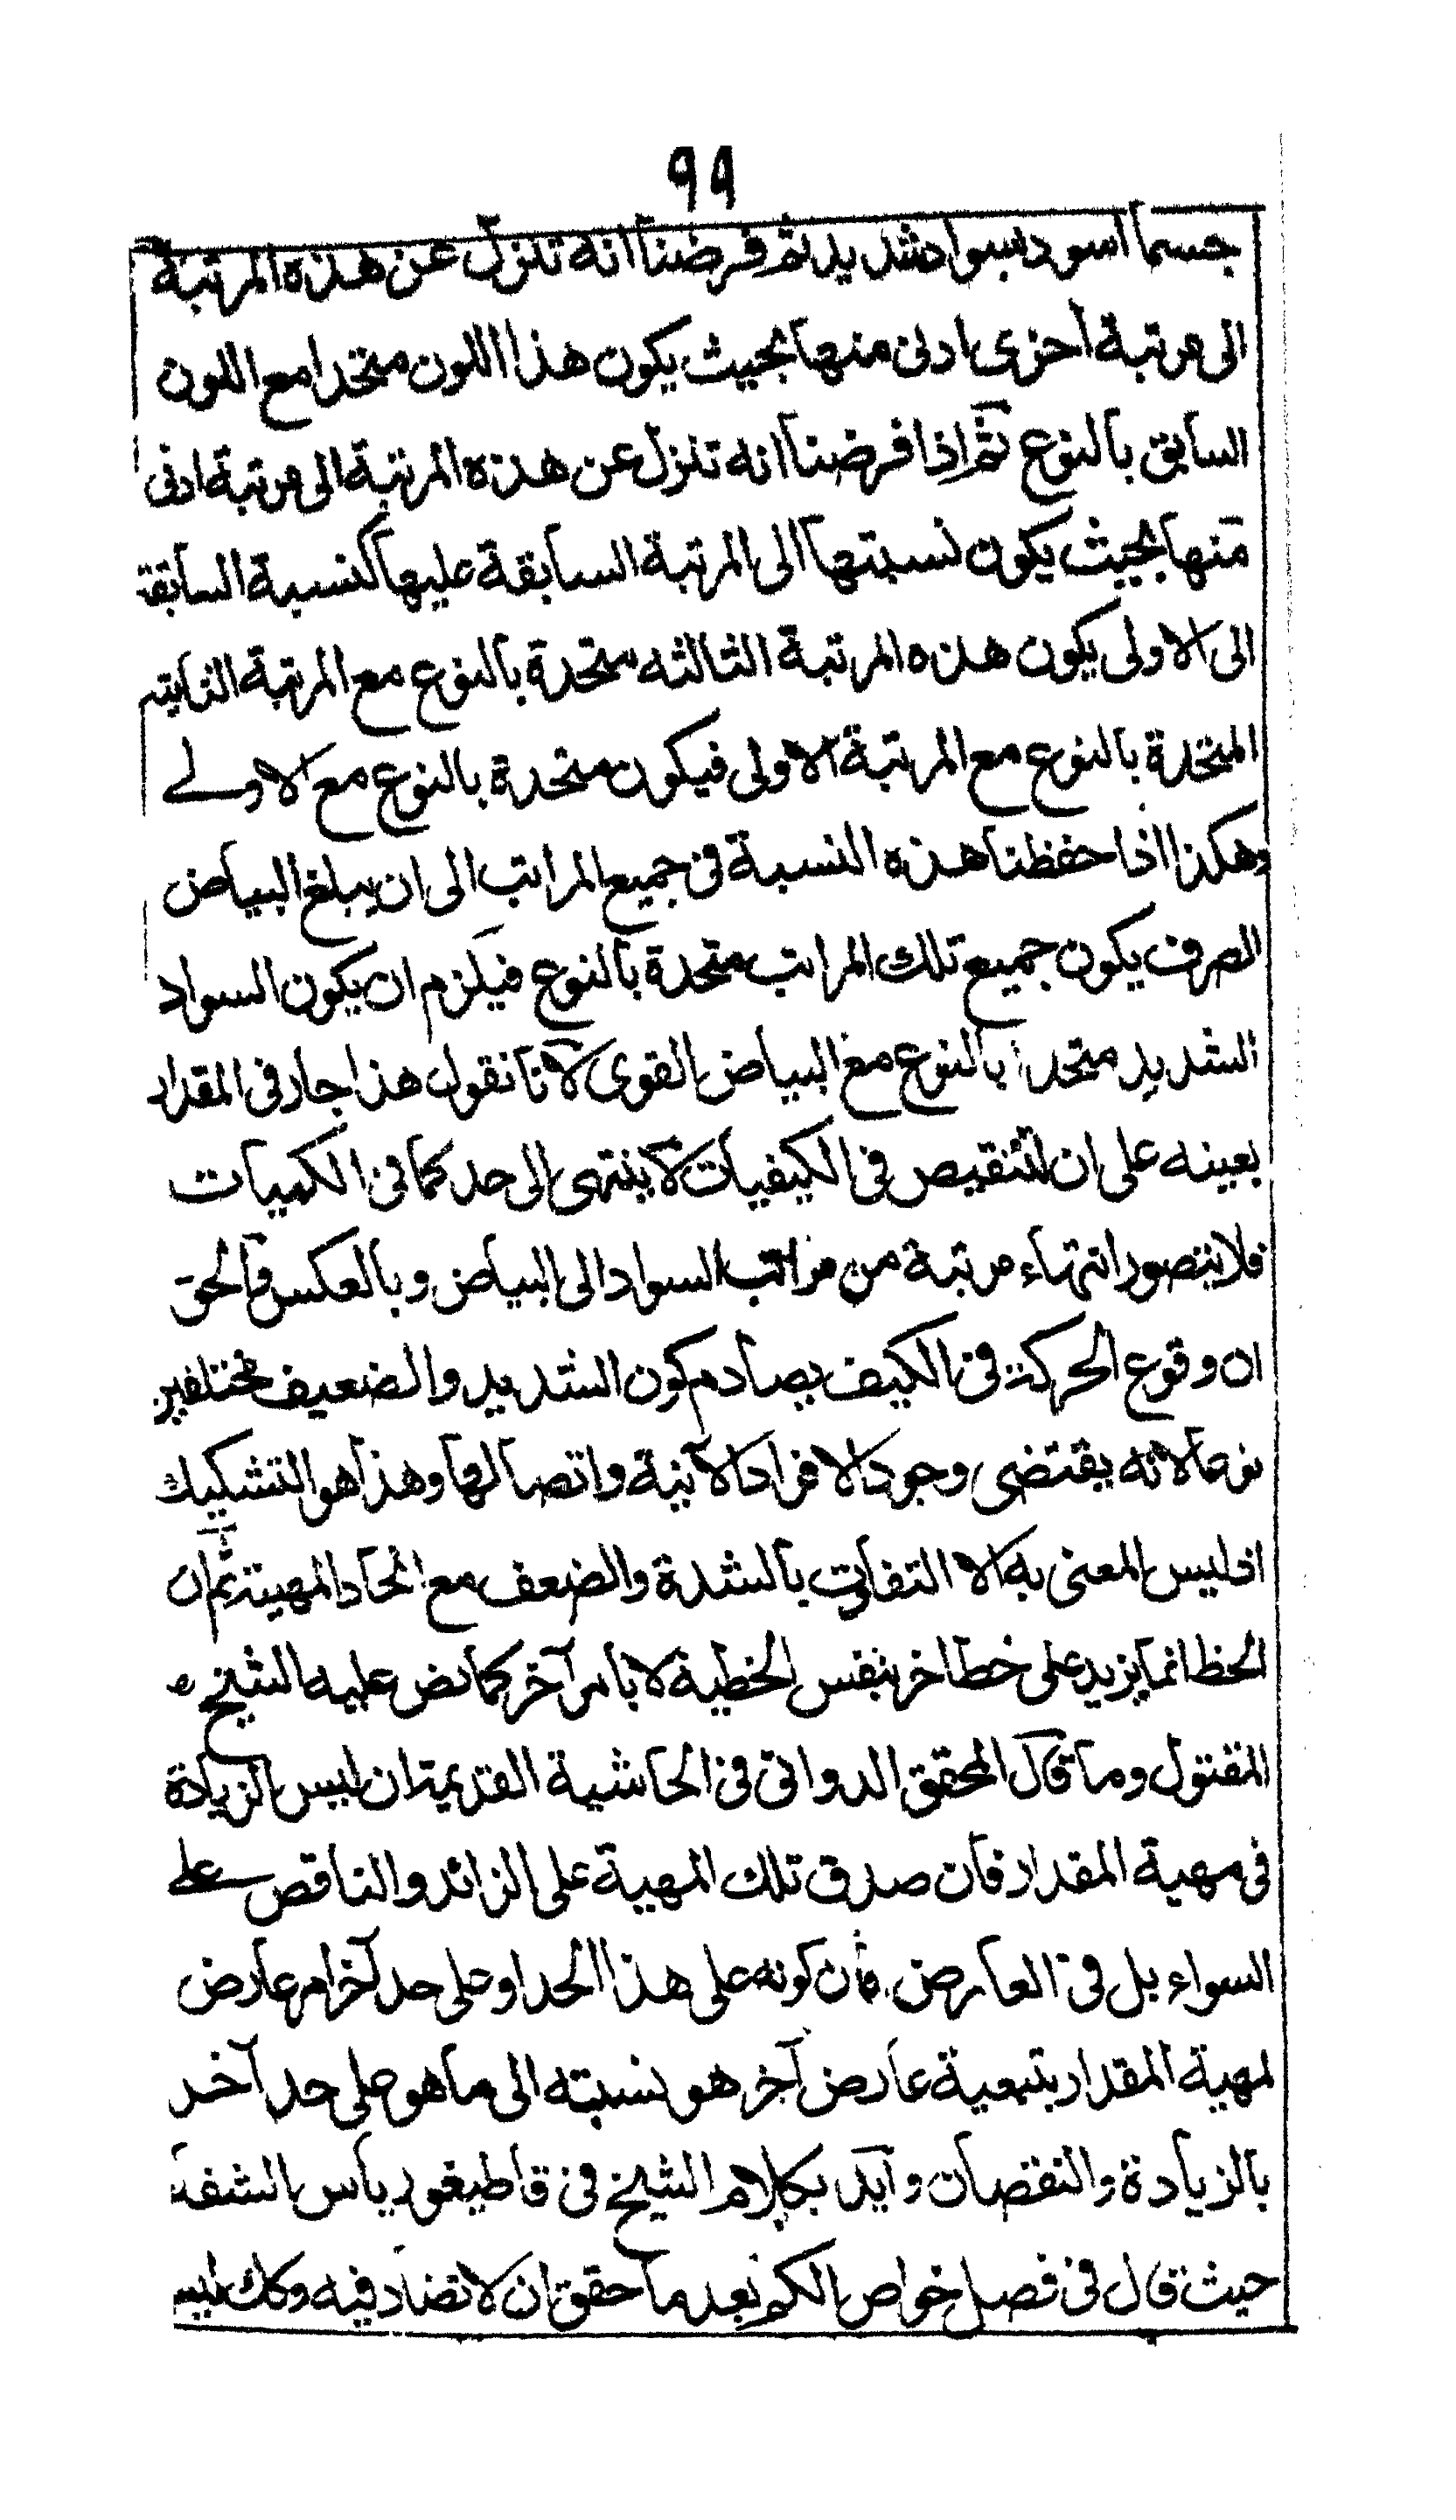 ۹۹
جسما اسود بسواد شديد ثم فرضنا انه تنزل عن هذه المرتبة
الى مرتبة اخرى ادنى منها بحيث يكون هذا اللون متحدا مع اللون
السابق بالنوع ثم اذا فرضنا انه تنزل عن هذه المرتبة الى مرتبة ادنى
منها بحيث يكون نسبتها الى المرتبة السابقة عليها كنسبة السابقة
الى الاولى يكون هذه المرتبة الثالثه متحدة بالنوع مع المرتبة الثانيه
المتحدة بالنوع مع المرتبة الاولى فيكون متحدة بالنوع مع الاولے
وهكذا اذا حفظنا هذه النسبة فى جميع المراتب الى ان يبلغ البياض
الصرف يكون جميع تلك المراتب متحدة بالنوع فيلزم ان يكون السواد
الشديد متحدا بالنوع مع البياض القوى لانا نقول هذا جار فى المقدار
بعينه على ان التنقيص فى الكيفيات لا ينتهى الى حد كما فى الكميات
فلا يتصور انتهاء مرتبة من مراتب السواد الى البياض وبالعكس فالحق
ان وقوع الحركة فى الكيف يصادم كون الشديد والضعيف مختلفين
نوعا لانه يقتضى وجود الافراد الآنية واتصالها وهذا هو التشكيك
اذ ليس المعنى به الا التفاوت بالشدة والضعف مع اتحاد المهية ثم ان
الخط انما يزيد على خط اخر بنفس الخطية لا بامر آخر كما نص عليه الشيخ
المقتول وما قال المحقق الدوانى فى الحاشية القديمة ان ليس الزيادة
فى مهية المقدار فان صدق تلك المهية على الزائد والناقص علے
السواء بل فى العارض فان كونه على هذا الحد او على حد آخر امر عارض
لمهية المقدار بتبعية عارض آخر هو نسبته الى ما هو على حد آخر
بالزيادة والنقصان وايد بكلام الشيخ فى قاطيغورياس الشفا
حيث قال فى فصل خواص الكم بعد ما حقق ان لا تضاد فيه وكك ليس